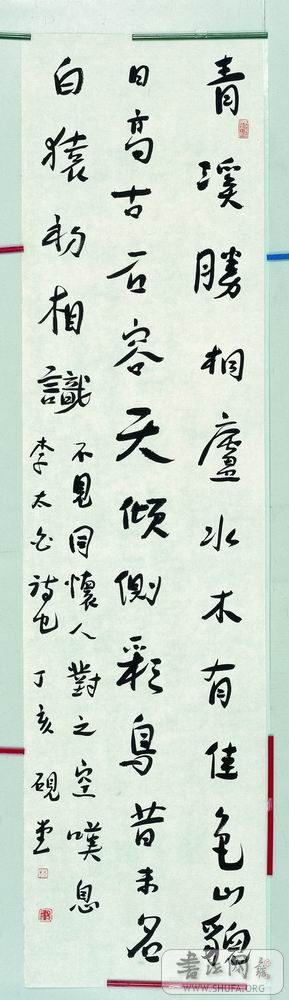 青溪勝桐廬水木有佳色山貌
日高古石容天傾側彩鳥昔未名
白猿初相識
不見同懷人對之空嘆息
李太白詩也 丁亥 硯堂
书法网
WWW.SHUFA.ORG